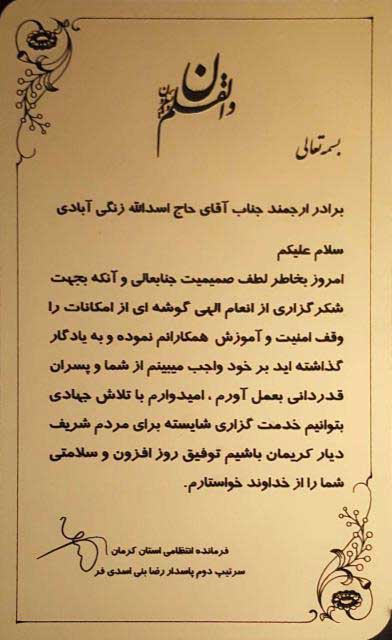 ن والقلم و ما یسطرون
بسمه تعالی
برادر ارجمند جناب آقای حاج اسدالله زنگی آبادی
سلام علیکم
امروز بخاطر لطف صمیمیت جنابعالی و آنکه بجهت
شکر گزاری از انعام الهی گوشه ای از امکانات را
وقف امنیت و آموزش همکارانم نموده و به یادگار
گذاشته اید بر خود واجب میبینم از شما و پسران
قدردانی بعمل آورم ، امیدوارم با تلاش جهادی
بتوانیم خدمت گزاری شایسته برای مردم شریف
دیار کریمان باشیم توفیق روز افزون و سلامتی
شما را از خداوند خواستارم.
فرمانده انتظامی استان کرمان
سرتیپ دوم پاسدار رضا بنی اسدی فر